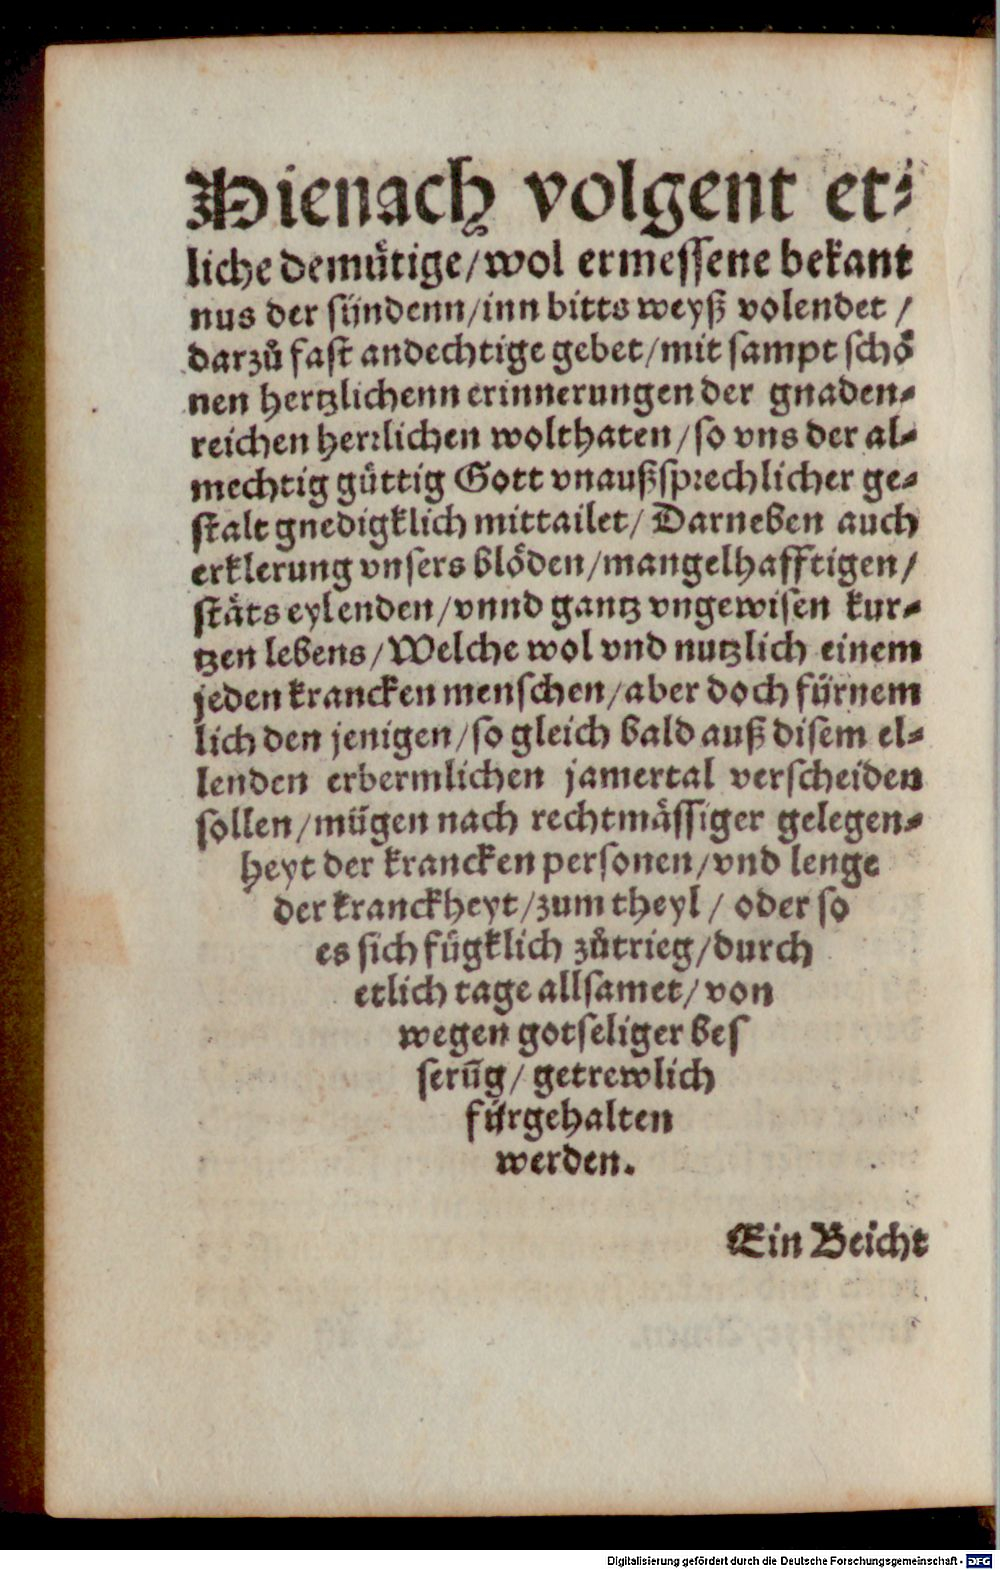 Hienach volgent et⸗
liche demuͤtige/wol ermessene bekant
nus der sündenn/inn bitts weyß volendet /
darzuͦ fast andechtige gebet/mit sampt schoͤ
nen hertzlichenn erinnerungen der gnaden⸗
reichen herrlichen wolthaten/so vns der al⸗
mechtig guͤttig Gott vnaußsprechlicher ge⸗
stalt gnedigklich mittailet/ Darneben auch
erklerung vnsers bloͤden/mangelhafftigen/
staͤts eylenden/vnnd gantz vngewisen kur⸗
tzen lebens/Welche wol vnd nutzlich einem
jeden krancken menschen/aber doch fürnem
lich den jenigen/so gleich bald auß disem el⸗
lenden erbermlichen jamertal verscheiden
sollen/mügen nach rechtmaͤssiger gelegen⸗
heyt der krancken personen/vnd lenge
der kranckheyt/zum theyl / oder so
es sich fügklich zuͦtrieg/durch
etlich tage allsamet/von
wegen gotseliger bes
serūg/ getrewlich
fürgehalten
werden.
Ein Beicht
Digitalisierung gefördert durch die Deutsche Forschungsgemeinschaft - DFG